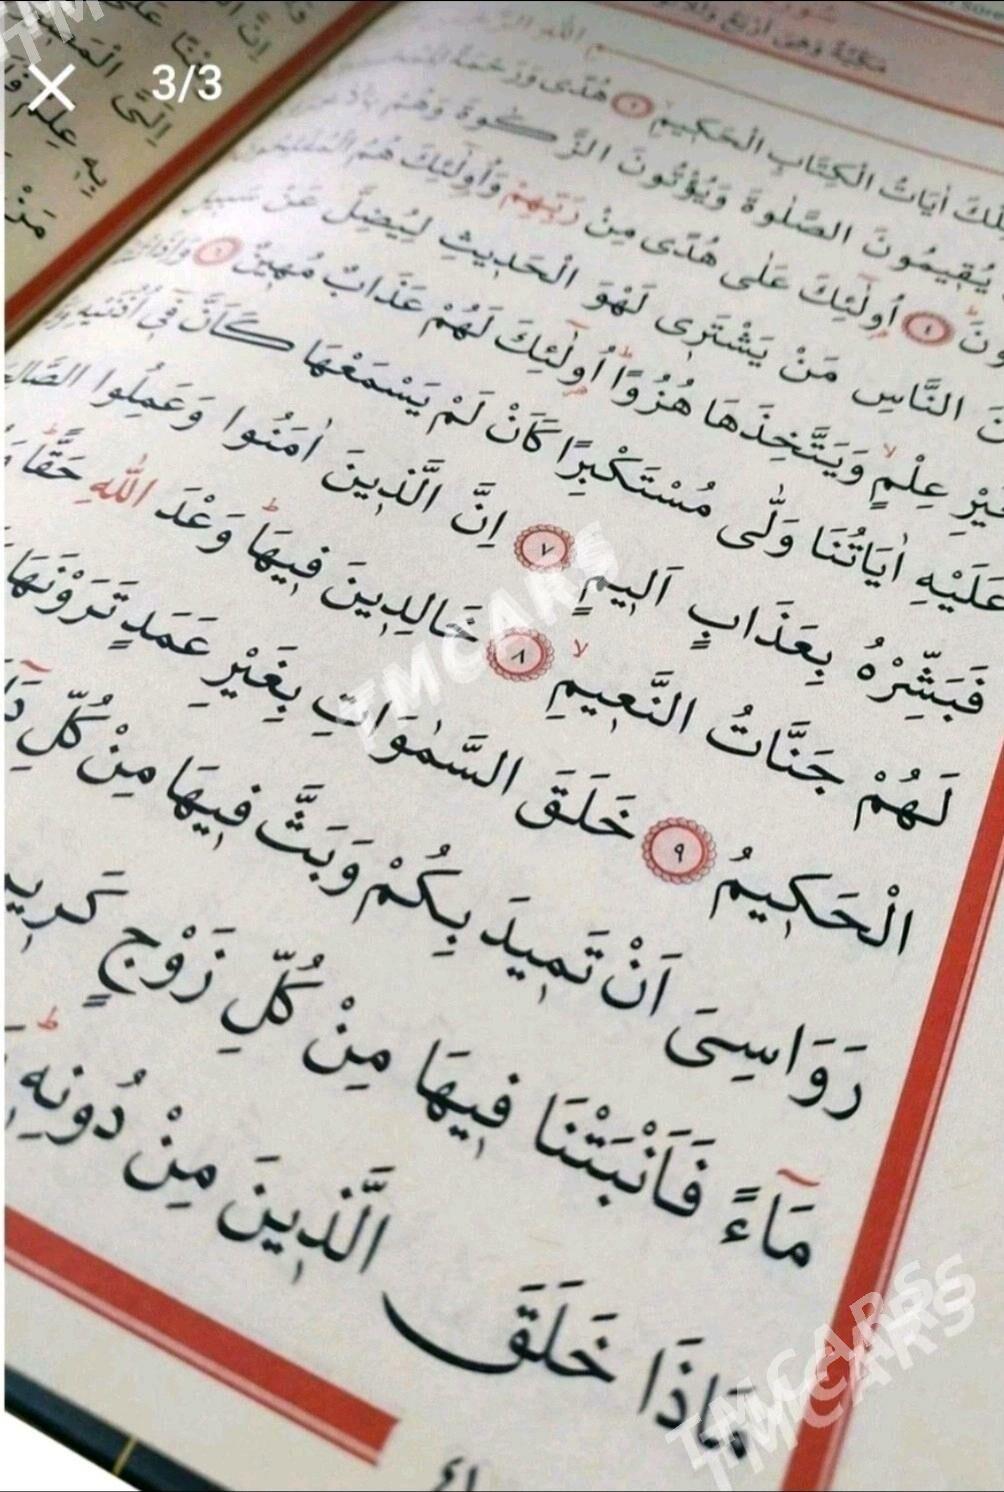 3/3
مَكِّيَّةٌ وَهِىَ اَرْبَعٌ وَثَلَاثُونَ
تِلْكَ اٰيَاتُ الْكِتَابِ الْحَكِيمِ ٢ هُدًى وَرَحْمَةً
يُقِيمُونَ الصَّلٰوةَ وَيُؤْتُونَ الزَّكٰوةَ وَهُمْ
ونَ ٤ اُو۬لٰٓئِكَ عَلٰى هُدًى مِنْ رَبِّهِمْ وَاُو۬لٰٓئِكَ هُمُ الْمُفْلِحُونَ
النَّاسِ مَنْ يَشْتَرٖى لَهْوَ الْحَدٖيثِ لِيُضِلَّ عَنْ سَبٖيلِ
عِلْمٍ وَيَتَّخِذَهَا هُزُوًا اُو۬لٰٓئِكَ لَهُمْ عَذَابٌ مُهٖينٌ ٦ وَاِذَا
عَلَيْهِ اٰيَاتُنَا وَلّٰى مُسْتَكْبِرًا كَاَنْ لَمْ يَسْمَعْهَا كَاَنَّ فٖٓى اُذُنَيْهِ
فَبَشِّرْهُ بِعَذَابٍ اَلٖيمٍ ٧ اِنَّ الَّذٖينَ اٰمَنُوا وَعَمِلُوا
لَهُمْ جَنَّاتُ النَّعٖيمِ ٨ خَالِدٖينَ فٖيهَا وَعْدَ اللّٰهِ حَقًّا
الْحَكٖيمُ ٩ خَلَقَ السَّمٰوَاتِ بِغَيْرِ عَمَدٍ تَرَوْنَهَا
رَوَاسِىَ اَنْ تَمٖيدَ بِكُمْ وَبَثَّ فٖيهَا مِنْ كُلِّ
مَٓاءً فَاَنْبَتْنَا فٖيهَا مِنْ كُلِّ زَوْجٍ كَرٖيمٍ
مَاذَا خَلَقَ الَّذٖينَ مِنْ دُونِهٖ
TMCARS
TMCARS
TMCARS